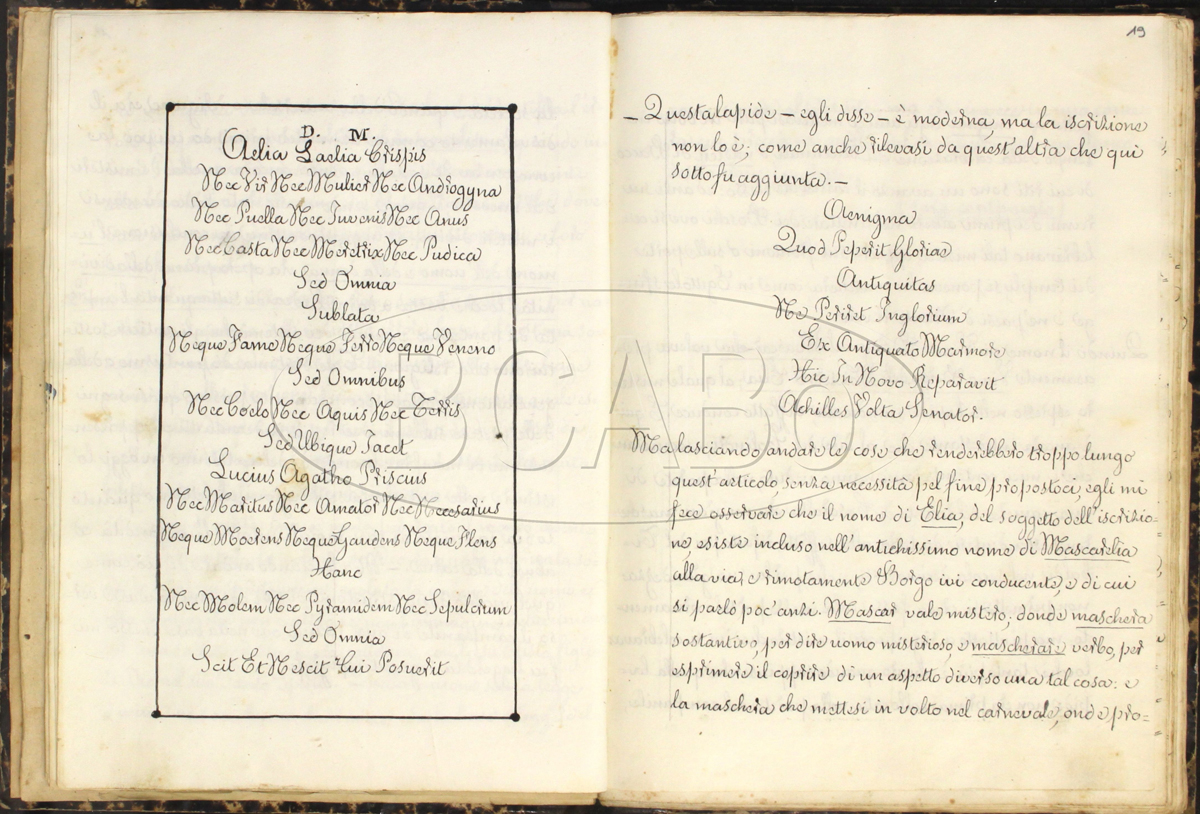 D. M.
Aelia Laelia Crispis
Nec Vir Nec Mulier Nec Androgyna
Nec Puella Nec Juvenis Nec Anus
Nec Casta Nec Meretrix Nec Pudica
Sed Omnia
Sublata
Neque Fame Neque Ferro Neque Veneno
Sed Omnibus
Nec Coelo Nec Aquis Nec Terris
Sed Ubique Jacet
Lucius Agatho Priscius
Nec Maritus Nec Amator Nec Necesarius
Neque Moerens Neque Gaudens Neque Flens
Hanc
Nec Molem Nec Pyramidem Nec Sepulcrum
Sed Omnia
Scit Et Nescit Cui Posuerit
19
– Questa lapide – egli disse – è moderna, ma la iscrizione
non lo è; come anche rilevasi da quest'altra che qui
sotto fu aggiunta. –
Aenigma
Quod Peperit Gloriae
Antiquitas
Ne Periret Inglorium
Ex Antiquato Marmore
Hic In Novo Reparavit
Achilles Volta Senator.
Ma lasciando andare le cose che renderebbero troppo lungo
quest'articolo, senza necessità pel fine propostoci, egli mi
fece osservare che il nome di Elia, del soggetto dell'iscrizio=
ne, esiste incluso nell'antichissimo nome di Mascarelia
alla via, e rimotamente Borgo ivi conducente, e di cui
si parlò poc'anzi. Mascar vale mistero; donde maschera
sostantivo, per dire uomo misterioso, e mascherare verbo, per
esprimere il coprire di un aspetto diverso una tal cosa: e
la maschera che mettesi in volto nel carnevale, onde pro=
BCABO